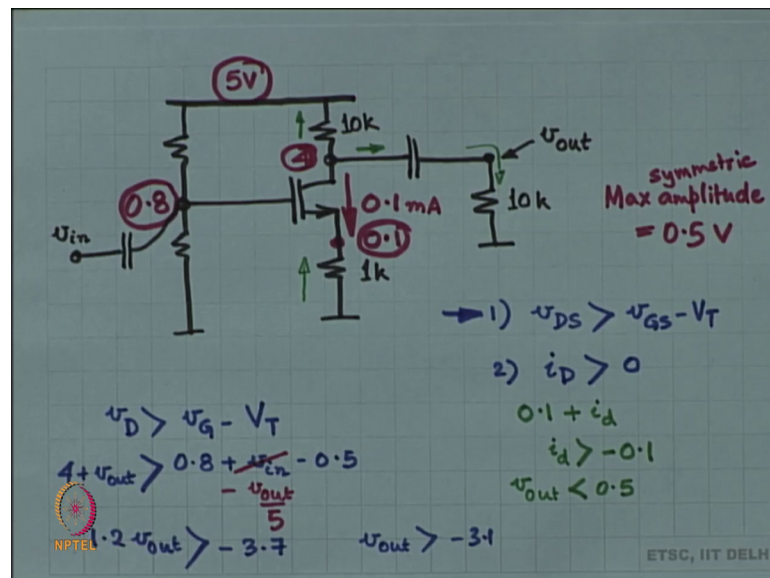 5V
10k
4
v_out
0.8
0.1 mA
10k
symmetric
Max amplitude
= 0.5 V
v_in
0.1
1k
1) v_DS > v_GS - V_T
2) i_D > 0
0.1 + i_d
i_d > -0.1
v_out < 0.5
v_D > v_G - V_T
4 + v_out > 0.8 + v_in - 0.5
- v_out/5
1.2 v_out > -3.7
v_out > -3.1
NPTEL
ETSC, IIT DELH